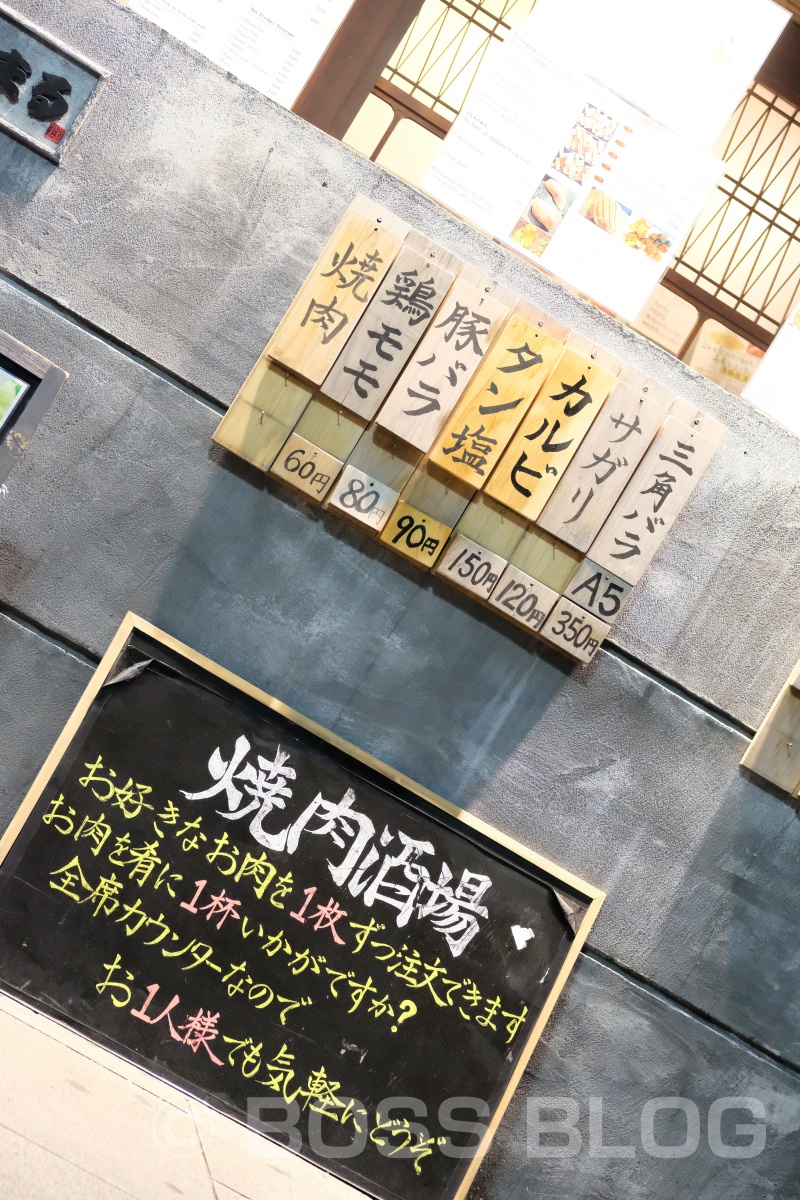 まる
焼肉
鶏モモ
豚バラ
タン塩
カルビ
サガリ
三角バラ
60円
80円
90円
150円
120円
A5
350円
焼肉酒場
お好きなお肉を1枚ずつ注文できます
お肉を肴に1杯いかがですか?
全席カウンターなので
お1人様でも気軽にどうぞ
© BOSS BLOG